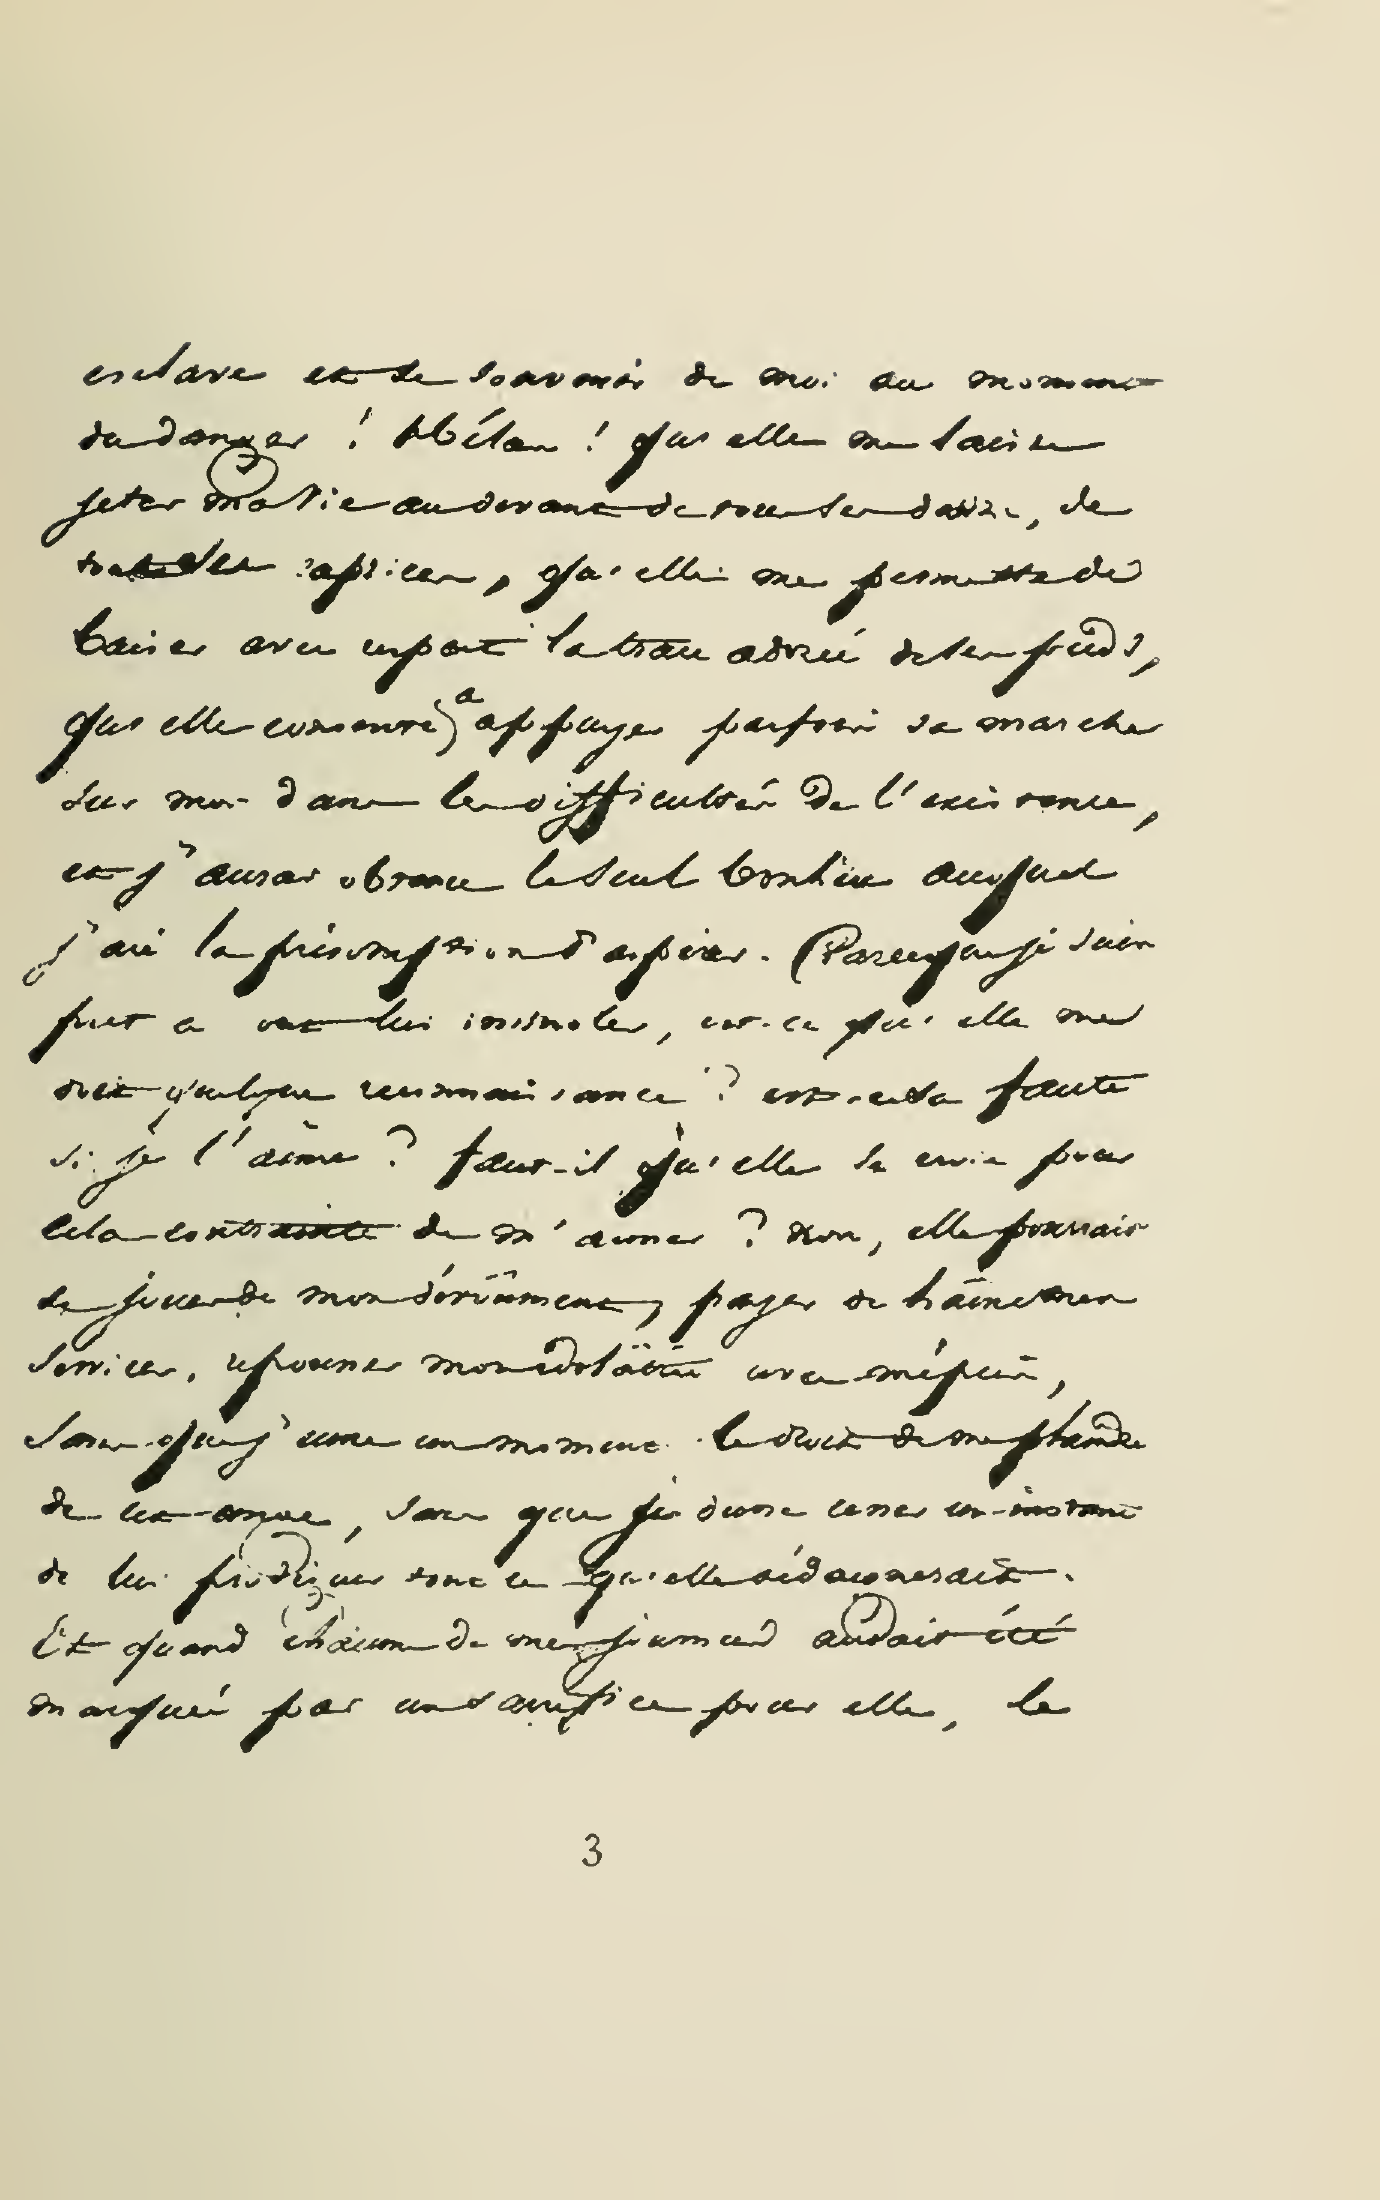 esclave et se souvenir de moi au moment
du danger ! Hélas ! qu'elle me laisse
jeter ma vie au devant de tous ses désirs, de
tous ses caprices, qu'elle me permette de
baiser avec respect la trace adorée de ses pieds,
qu'elle consente à appuyer parfois sa marche
sur moi dans les difficultés de l'existence,
et j'aurai obtenu le seul bonheur auquel
j'ai la présomption d'aspirer. Parce que je suis
prêt a tout lui immoler, est-ce qu'elle me
doit quelque reconnaissance ? est-ce sa faute
si je l'aime ? faut-il qu'elle se croie pour
cela contrainte de m'aimer ? Non, elle pourrait
se jouer de mon dévoûment, payer de haine mes
services, repousser mon idolâtrie avec mépris,
sans que j'eusse un moment le droit de me plaindre
de cet ange, sans que je dusse cesser un instant
de lui prodiguer tout ce qu'elle dédaignerait.
Et quand chacun de mes jours aurait été
marqué par un sacrifice pour elle, le
3